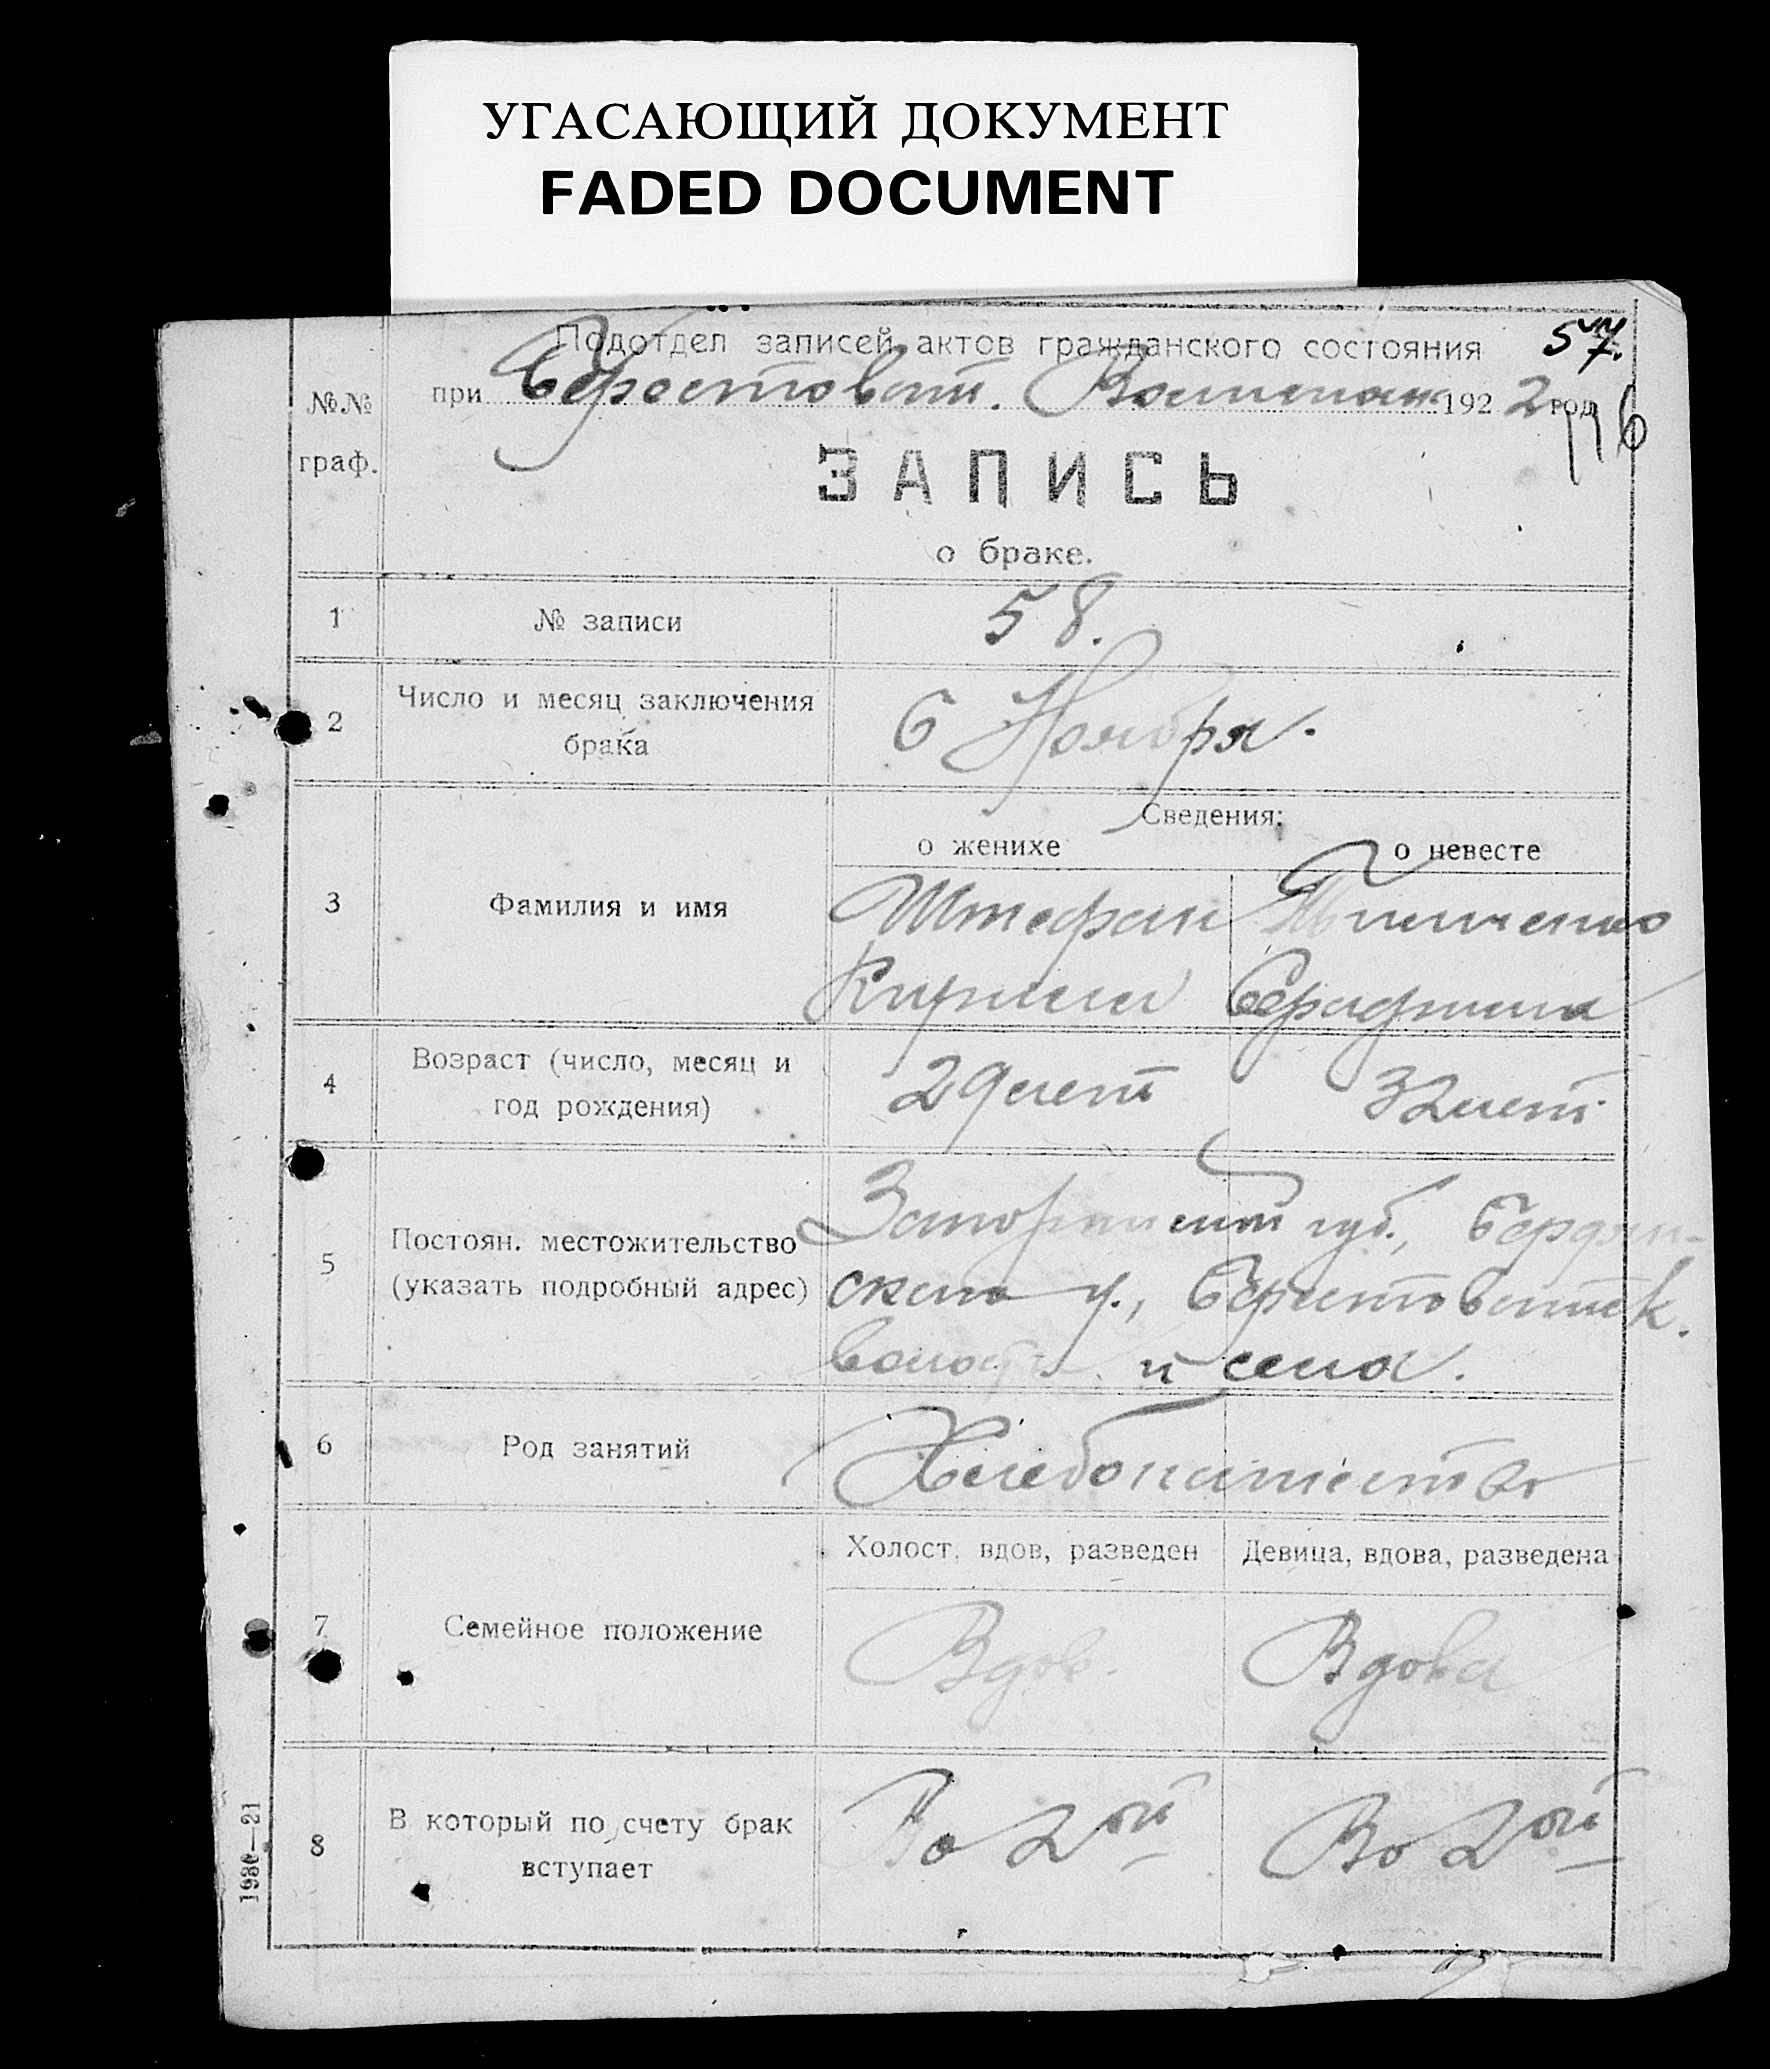 УГАСАЮЩИЙ ДОКУМЕНТ
FADED DOCUMENT
57.
Подотдел записей актов гражданского состояния
при Берестоват. 1922 год
116
№№ граф.
ЗАПИСЬ
о браке.
1 № записи 58.
2 Число и месяц заключения брака 6 Ноября.
Сведения:
о женихе о невесте
3 Фамилия и имя Штефан
Кирилл Серафима
4 Возраст (число, месяц и год рождения) 29 лет 32 лет
5 Постоян. местожительство (указать подробный адрес) губ., Бердян-
ского у., Берестоватск.
волости и села.
6 Род занятий Хлебопашество
Холост, вдов, разведен Девица, вдова, разведена
7 Семейное положение Вдов. Вдова
8 В который по счету брак вступает Во 2ой Во 2ой
1930—21